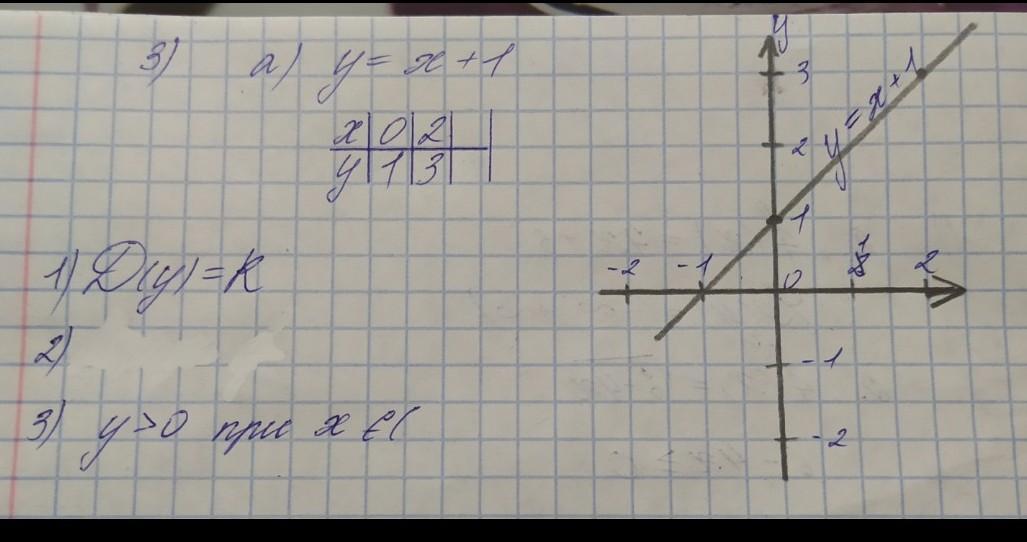 3) а) y = x + 1
x | 0 | 2 |
y | 1 | 3 |
1) D(y) = R
2)
3) y > 0 при x ∈ (
y
3
2
1
y = x + 1
-2 -1 0 1 2
-1
-2